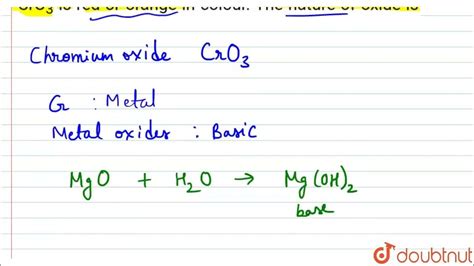 CrO3 is red or orange in colour. The nature of oxide is
Chromium oxide CrO3
Cr : Metal
Metal oxides : Basic
MgO + H2O → Mg(OH)2
base
doubtnut